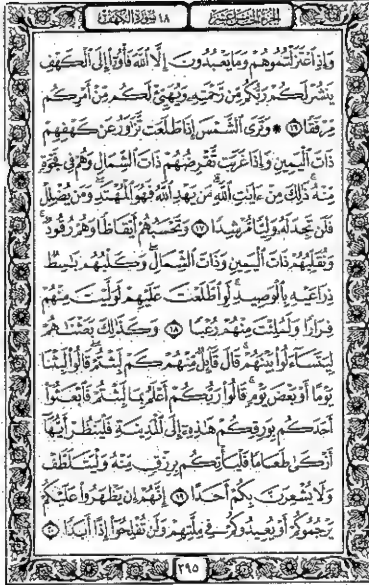 ١٨ سورة الكهف
الجزء الخامس عشر
وَإِذِ اعْتَزَلْتُمُوهُمْ وَمَا يَعْبُدُونَ إِلَّا اللَّهَ فَأْوُوا إِلَى الْكَهْفِ
يَنشُرْ لَكُمْ رَبُّكُم مِّن رَّحْمَتِهِ وَيُهَيِّئْ لَكُم مِّنْ أَمْرِكُم
مِّرْفَقًا ١٦ ۞ وَتَرَى الشَّمْسَ إِذَا طَلَعَت تَّزَاوَرُ عَن كَهْفِهِمْ
ذَاتَ الْيَمِينِ وَإِذَا غَرَبَت تَّقْرِضُهُمْ ذَاتَ الشِّمَالِ وَهُمْ فِي فَجْوَةٍ
مِّنْهُ ۚ ذَٰلِكَ مِنْ آيَاتِ اللَّهِ ۗ مَن يَهْدِ اللَّهُ فَهُوَ الْمُهْتَدِ ۖ وَمَن يُضْلِلْ
فَلَن تَجِدَ لَهُ وَلِيًّا مُّرْشِدًا ١٧ وَتَحْسَبُهُمْ أَيْقَاظًا وَهُمْ رُقُودٌ ۚ
وَنُقَلِّبُهُمْ ذَاتَ الْيَمِينِ وَذَاتَ الشِّمَالِ ۖ وَكَلْبُهُم بَاسِطٌ
ذِرَاعَيْهِ بِالْوَصِيدِ ۚ لَوِ اطَّلَعْتَ عَلَيْهِمْ لَوَلَّيْتَ مِنْهُمْ
فِرَارًا وَلَمُلِئْتَ مِنْهُمْ رُعْبًا ١٨ وَكَذَٰلِكَ بَعَثْنَاهُمْ
لِيَتَسَاءَلُوا بَيْنَهُمْ ۚ قَالَ قَائِلٌ مِّنْهُمْ كَمْ لَبِثْتُمْ ۖ قَالُوا لَبِثْنَا
يَوْمًا أَوْ بَعْضَ يَوْمٍ ۚ قَالُوا رَبُّكُمْ أَعْلَمُ بِمَا لَبِثْتُمْ فَابْعَثُوا
أَحَدَكُم بِوَرِقِكُمْ هَٰذِهِ إِلَى الْمَدِينَةِ فَلْيَنظُرْ أَيُّهَا
أَزْكَىٰ طَعَامًا فَلْيَأْتِكُم بِرِزْقٍ مِّنْهُ وَلْيَتَلَطَّفْ
وَلَا يُشْعِرَنَّ بِكُمْ أَحَدًا ١٩ إِنَّهُمْ إِن يَظْهَرُوا عَلَيْكُمْ
يَرْجُمُوكُمْ أَوْ يُعِيدُوكُمْ فِي مِلَّتِهِمْ وَلَن تُفْلِحُوا إِذًا أَبَدًا ٢٠
٢٩٥